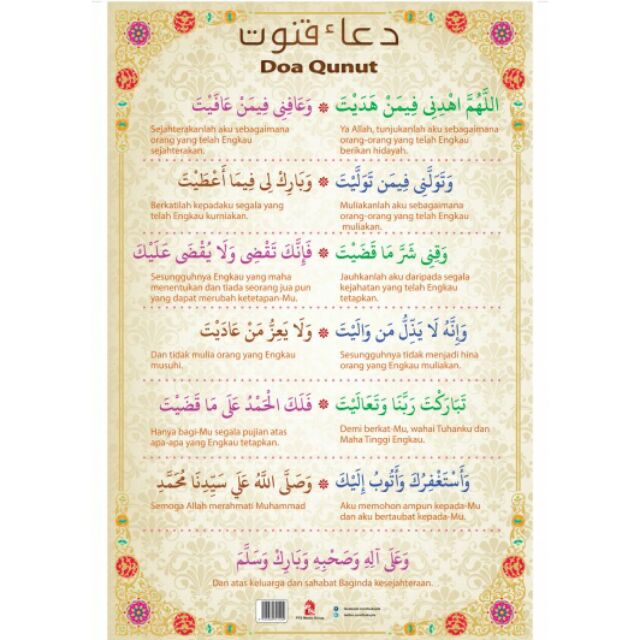 دعاء قنوت
Doa Qunut
اللَّهُمَّ اهْدِنِى فِيمَنْ هَدَيْتَ
Ya Allah, tunjukanlah aku sebagaimana
orang-orang yang telah Engkau
berikan hidayah.
وَعَافِنِى فِيمَنْ عَافَيْتَ
Sejahterakanlah aku sebagaimana
orang yang telah Engkau
sejahterakan.
وَتَوَلَّنِى فِيمَن تَوَلَّيْتَ
Muliakanlah aku sebagaimana
orang-orang yang telah Engkau
muliakan.
وَبَارِكْ لِى فِيمَا أَعْطَيْتَ
Berkatilah kepadaku segala yang
telah Engkau kurniakan.
وَقِنِى شَرَّ مَا قَضَيْتَ
Jauhkanlah aku daripada segala
kejahatan yang telah Engkau
tetapkan.
فَإِنَّكَ تَقْضِى وَلَا يُقْضَى عَلَيْكَ
Sesungguhnya Engkau yang maha
menentukan dan tiada seorang jua pun
yang dapat merubah ketetapan-Mu.
وَإِنَّهُ لَا يَذِلُّ مَن وَالَيْتَ
Sesungguhnya tidak menjadi hina
orang yang Engkau muliakan.
وَلَا يَعِزُّ مَنْ عَادَيْتَ
Dan tidak mulia orang yang Engkau
musuhi.
تَبَارَكْتَ رَبَّنَا وَتَعَالَيْتَ
Demi berkat-Mu, wahai Tuhanku dan
Maha Tinggi Engkau.
فَلَكَ الْحَمْدُ عَلَى مَا قَضَيْتَ
Hanya bagi-Mu segala pujian atas
apa-apa yang Engkau tetapkan.
وَأَسْتَغْفِرُكَ وَأَتُوبُ إِلَيْكَ
Aku memohon ampun kepada-Mu
dan aku bertaubat kepada-Mu.
وَصَلَّى اللَّهُ عَلَي سَيِّدِنَا مُحَمَّدٍ
Semoga Allah merahmati Muhammad
وَعَلَى آلِهِ وَصَحْبِهِ وَبَارِكْ وَسَلَّمَ
Dan atas keluarga dan sahabat Baginda kesejahteraan...